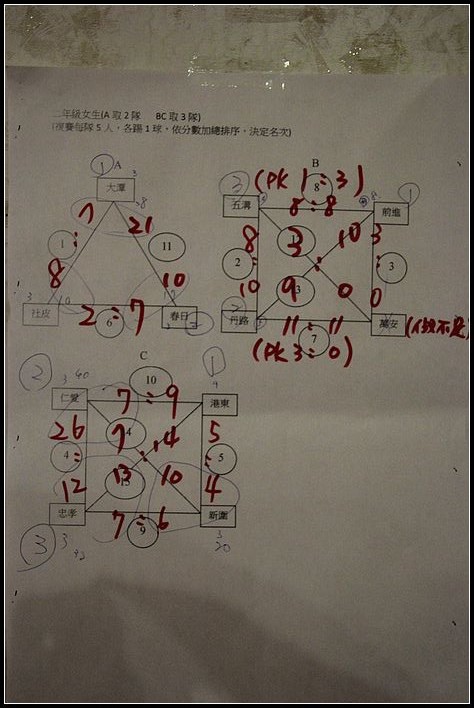 二年級女生(A 取 2 隊 BC 取 3 隊)
(複賽每隊 5 人，各踢 1 球，依分數加總排序，決定名次)
① A
大潭
7 : 8
21 : 10
1
11
社皮
2 : 7
6
春日
B
(PK 1 : 3)
③
8
①
五溝
8 : 8
前進
8 : 10
2
3
10
3 : 0
3
9
0
丹路
11 : 11
萬安
7
(PK 3 : 0)
C
②
10
①
仁愛
7 : 9
港東
26 : 12
4
7
14
5 : 4
5
13
10
忠孝
7 : 6
新園
9
③